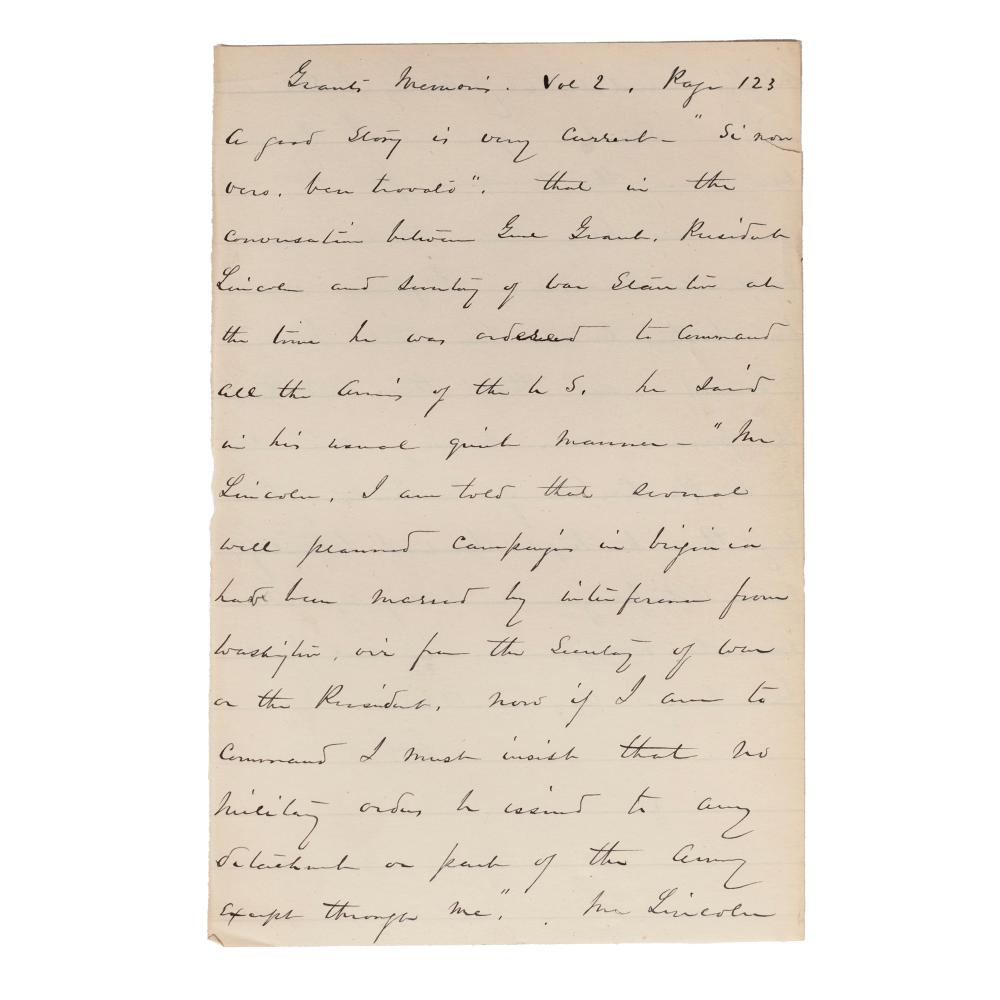 Grants Memoirs. Vol 2, Page 123
A good Story is very Current - "Si non
vero, ben trovato". that in the
conversation between Genl Grant, President
Lincoln and Secretary of War Stanton at
the time he was ordered to Command
all the Armies of the U S. he said
in his usual quiet manner - "Mr
Lincoln, I am told that several
well planned Campaigns in Virginia
had been marred by interference from
Washington, either from the Secretary of War
or the President. now if I am to
Command I must insist that no
Military orders be issued to any
detachment or part of the Army
except through me." Mr Lincoln